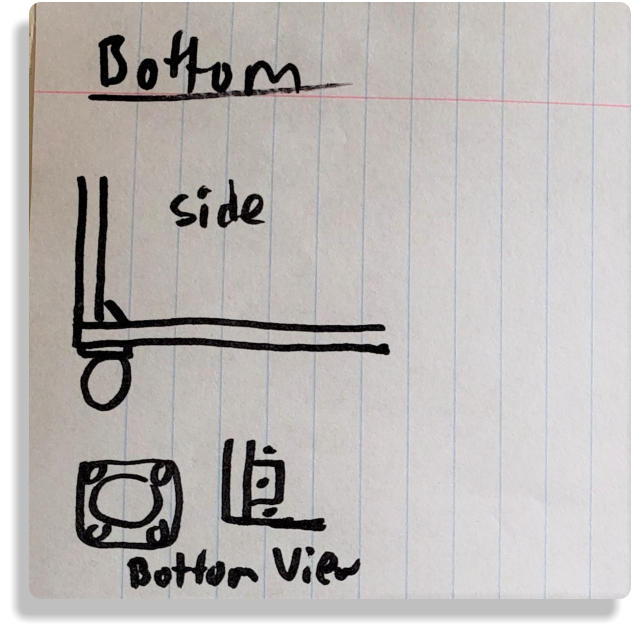 Bottom
side
Bottom View